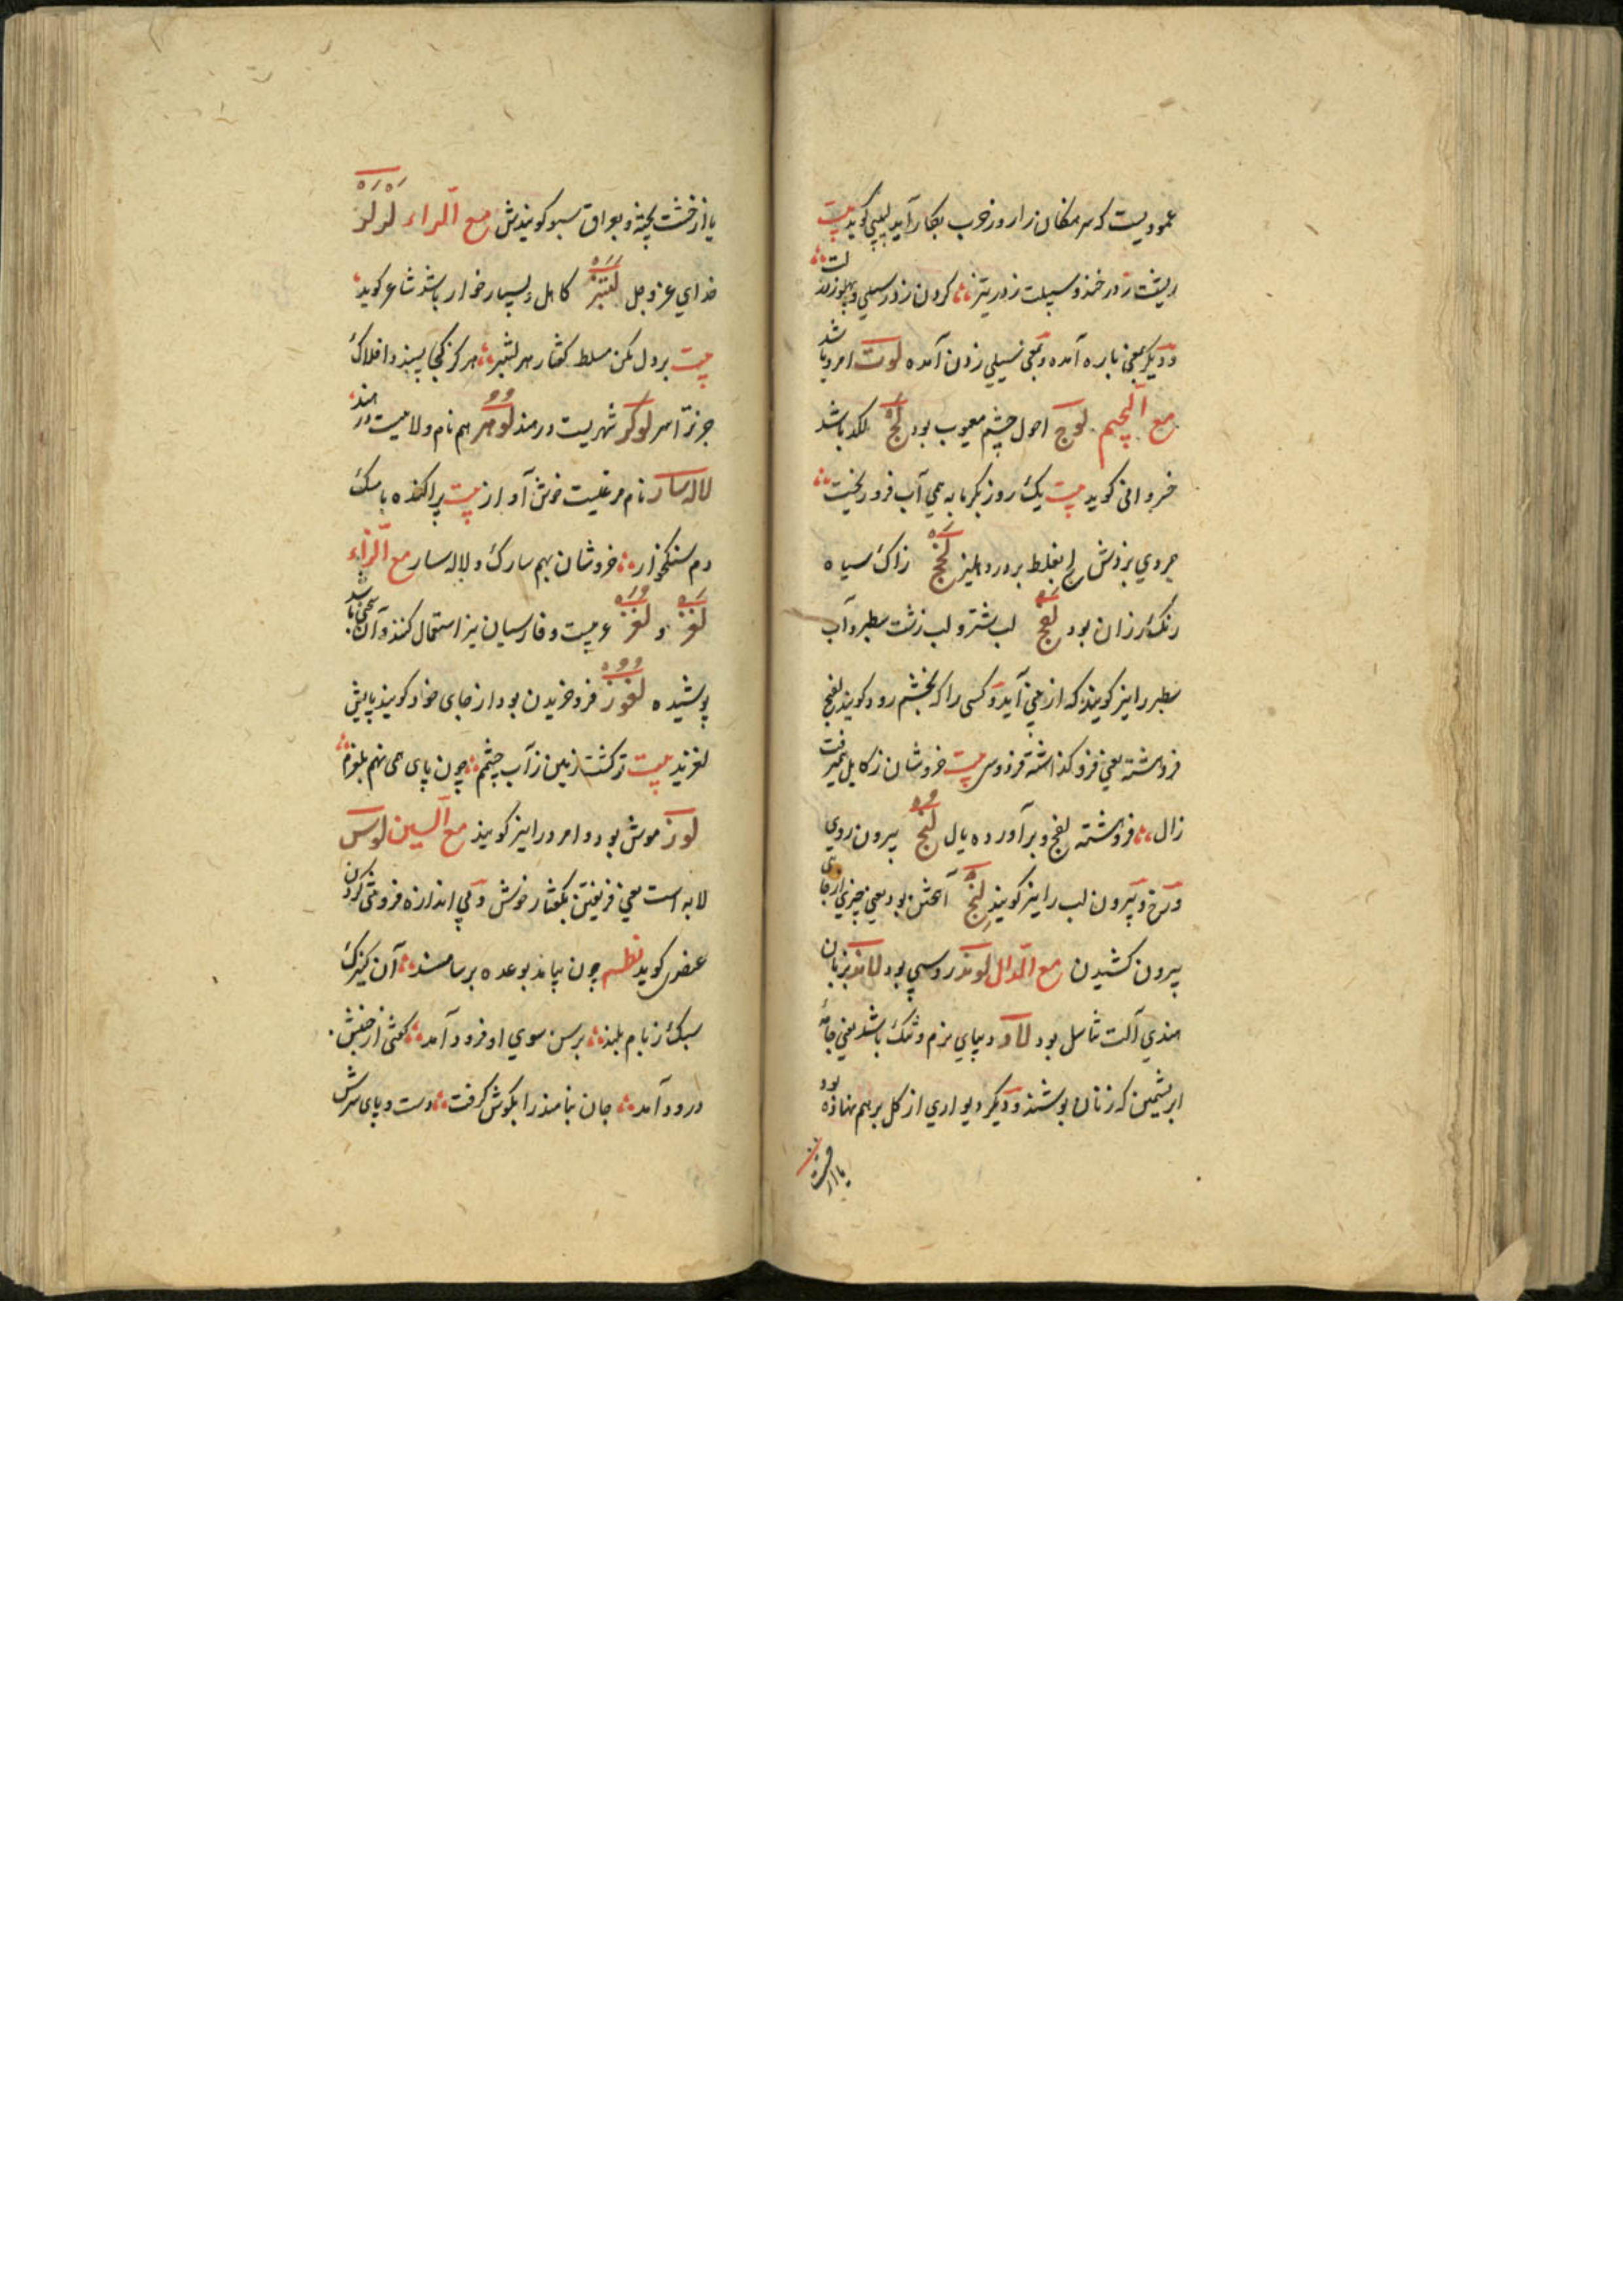 عمودیست که سرهنگان را روز حرب بکار آید لبیبی گوید بیت
ریشت ز در خنده و سبلت ز در تیز ؞ گردن ز در سیلی و پهلو ز در لت ؞
و دیگر بمعنی باره آمده و بمعنی سیلی زدن آمده لوت امرد باشد
مع الجیم لوچ احول چشم معیوب بود لج لگد باشد
خسروانی گوید بیت یک روز بگرمابه همی آب فرو ریخت ؞
مردی بزدش لج بغلط بر در دهلیز لخج زاک سیاه
رنگرزان بود لفج لب شتر و لب زشت سطبر و آب
سطبر را نیز گویند که از بینی آید و کسی را که بخشم رود گویند لفج
فروهشته یعنی فرو گذاشته فردوسی بیت خروشان ز کابل همی رفت
زال ؞ فروهشته لفج و برآورده یال لنج بیرون روی
و رخ و بیرون لب را نیز گویند لنج آهختن بود یعنی چیزی از جای
بیرون کشیدن مع الدال لوند روسپی بود لاند بزبان
هندی آلت تناسل بود لاد دیبای نرم و تنک باشد یعنی جامه
ابریشمین که زنان پوشند و دیگر دیواری از گل برهم نهاده بود
یا از خشت
یا از خشت پخته و بعراق سبو گویندش مع الراء لرلر
خدای عزوجل لتنبر کاهل و بسیار خوار باشد شاعر گوید ؞
بیت بر دل مکن مسلط گفتار هر لتنبر ؞ هرگز کجا پسندد افلاک
جز ترا سر لوکر شهریست در هند لوهر هم نام ولایتیست در هند ؞
لاله سار نام مرغیست خوش آواز بیت پراکنده با مشک
دم سنگخوار ؞ خروشان بهم سارک و لاله سار مع الزاء
لغز و لغز عربیست و فارسیان نیز استعمال کنند و آن سخنی باشد
پوشیده لغوز فرو خزیدن بود از جای خود گویند پایش
لغزید بیت تر گشت زمین ز آب چشمم ؞ چون پای همی نهم بلغزم ؞
لوز موش بود و امرد را نیز گویند مع السین لوس
لابه است یعنی فریفتن بگفتار خوش و بی اندازه فروتنی کردن
گوید نظم چون بیامد بوعده بر سامند ؞ آن کنیزک
سبک ز بام بلند ؞ برسن سوی او فرود آمد ؞ گفتی از جنبش
درود آمد ؞ جان سامند را بلوس گرفت ؞ دست و پای سرش